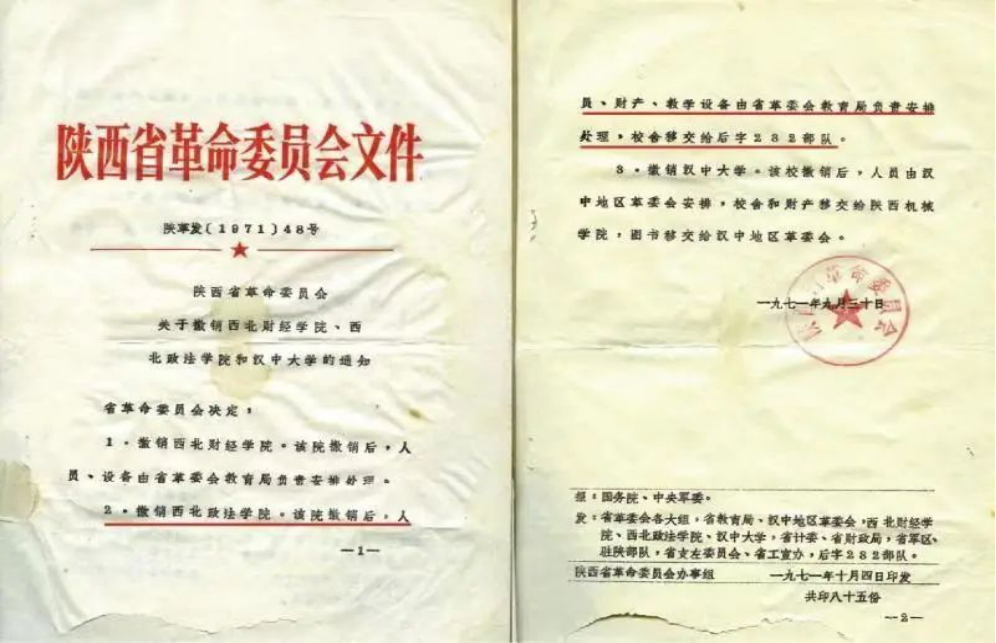 陕西省革命委员会文件
陕革发〔1971〕48号
陕西省革命委员会
关于撤销西北财经学院、西
北政法学院和汉中大学的通知
省革命委员会决定：
1．撤销西北财经学院。该院撤销后，人
员、设备由省革委会教育局负责安排处理。
2．撤销西北政法学院。该院撤销后，人
—1—
员、财产、教学设备由省革委会教育局负责安排
处理，校舍移交给后字282部队。
3．撤销汉中大学。该校撤销后，人员由汉
中地区革委会安排，校舍和财产移交给陕西机械
学院，图书移交给汉中地区革委会。
一九七一年九月三十日
革命委员会
报：国务院、中央军委。
发：省革委会各大组，省教育局、汉中地区革委会，西北财经学
院、西北政法学院、汉中大学，省计委、省财政局，省军区、
驻陕部队，省支左委员会、省工宣办，后字282部队。
陕西省革命委员会办事组 一九七一年十月四日印发
共印八十五份
—2—